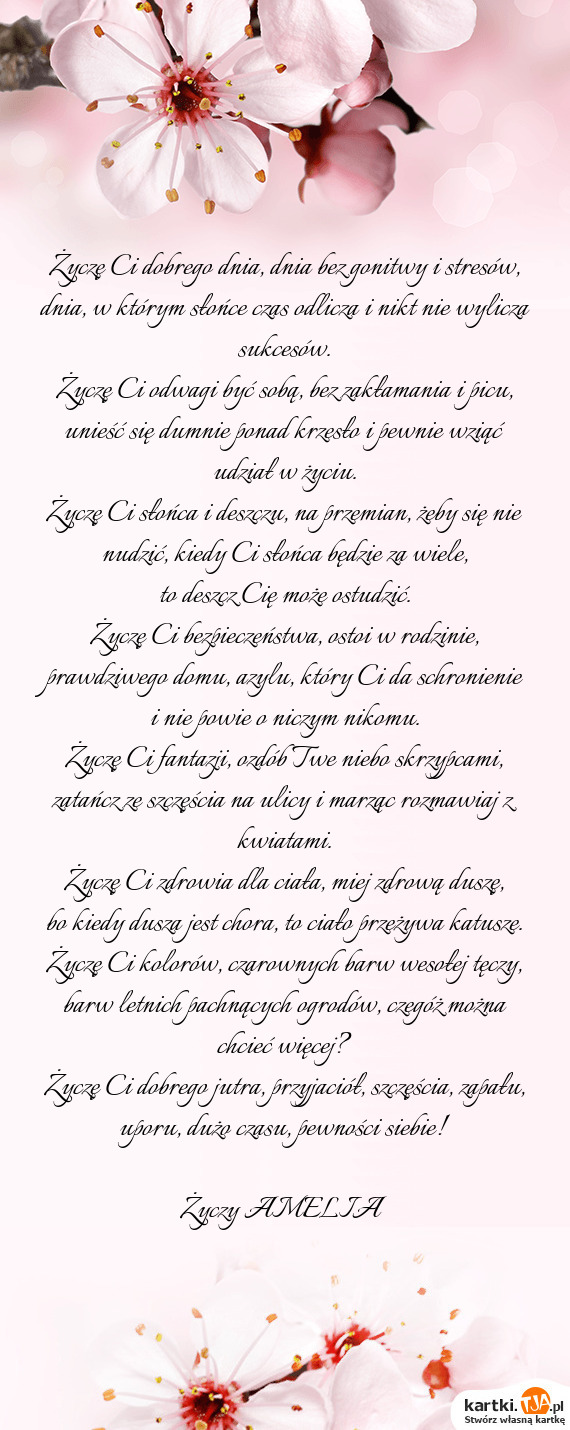 Życzę Ci dobrego dnia, dnia bez gonitwy i stresów,
dnia, w którym słońce czas odlicza i nikt nie wylicza
sukcesów.
Życzę Ci odwagi być sobą, bez zakłamania i picu,
unieść się dumnie ponad krzesło i pewnie wziąć
udział w życiu.
Życzę Ci słońca i deszczu, na przemian, żeby się nie
nudzić, kiedy Ci słońca będzie za wiele,
to deszcz Cię może ostudzić.
Życzę Ci bezpieczeństwa, ostoi w rodzinie,
prawdziwego domu, azylu, który Ci da schronienie
i nie powie o niczym nikomu.
Życzę Ci fantazji, ozdób Twe niebo skrzypcami,
zatańcz ze szczęścia na ulicy i marząc rozmawiaj z
kwiatami.
Życzę Ci zdrowia dla ciała, miej zdrową duszę,
bo kiedy dusza jest chora, to ciało przeżywa katusze.
Życzę Ci kolorów, czarownych barw wesołej tęczy,
barw letnich pachnących ogrodów, czegóż można
chcieć więcej?
Życzę Ci dobrego jutra, przyjaciół, szczęścia, zapału,
uporu, dużo czasu, pewności siebie!
Życzy AMELIA
kartki.TJA.pl
Stwórz własną kartkę